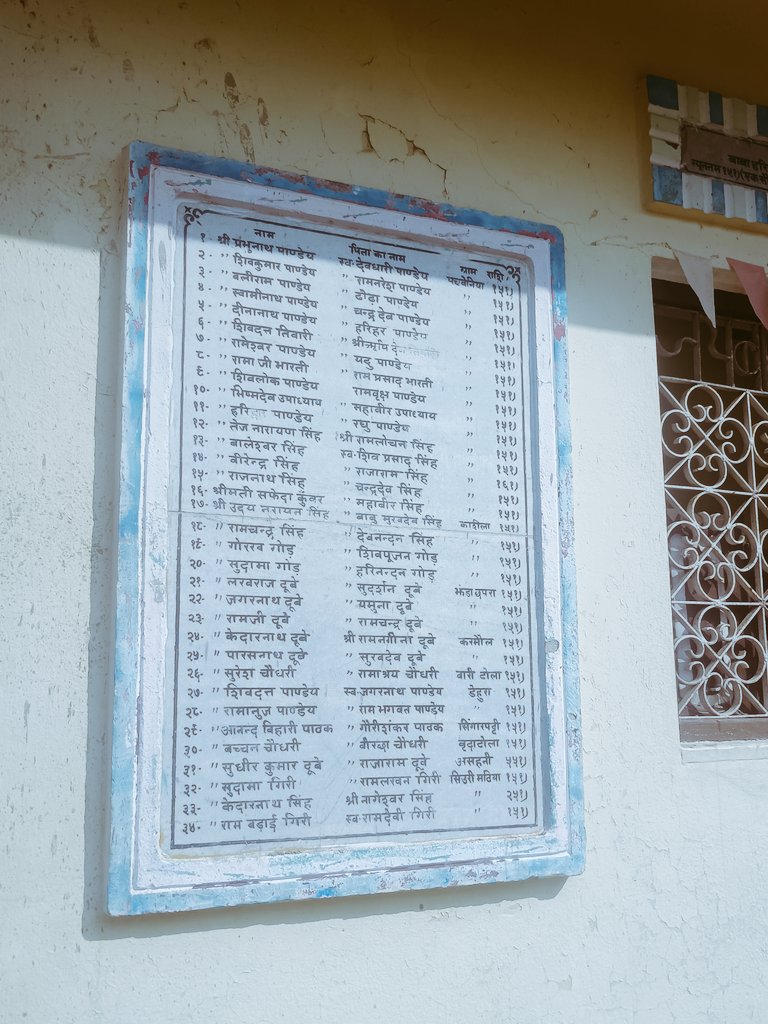 नाम पिता का नाम ग्राम राशि
१- श्री प्रभुनाथ पाण्डेय स्व॰ देवधारी पाण्डेय १५१)
२- '' शिवकुमार पाण्डेय '' रामनरेश पाण्डेय '' १५१)
३- '' बलीराम पाण्डेय '' ढोढ़ा पाण्डेय '' १५१)
४- '' स्वामीनाथ पाण्डेय '' चन्द्र देव पाण्डेय '' १५१)
५- '' दीनानाथ पाण्डेय '' हरिहर पाण्डेय '' १५१)
६- '' शिवदत्त तिवारी '' श्रीऋषि देव तिवारी '' १५१)
७- '' रामेश्वर पाण्डेय '' यदु पाण्डेय '' १५१)
८- '' रामा जी भारती '' राम प्रसाद भारती '' १५१)
९- '' शिवलोक पाण्डेय रामवृक्ष पाण्डेय '' १५१)
१०- '' भिष्मदेव उपाध्याय '' महावीर उपाध्याय '' १५१)
११- '' हरि पाण्डेय '' रघु पाण्डेय '' १५१)
१२- '' तेज नारायण सिंह श्री रामलोचन सिंह '' १५१)
१३- '' बालेश्वर सिंह स्व॰ शिव प्रसाद सिंह '' १५१)
१४- '' वीरेन्द्र सिंह '' राजाराम सिंह '' १५१)
१५- '' राजनाथ सिंह '' चन्द्रदेव सिंह '' १६१)
१६- श्रीमती सफेदा कुंवर '' महावीर सिंह '' १५१)
१७- श्री उदय नरायन सिंह '' बाबु सुखदेव सिंह १५१)
१८- '' रामचन्द्र सिंह '' देवनन्दन सिंह '' १५१)
१९- '' गोरख गोड़ '' शिवपूजन गोड़ '' १५१)
२०- '' सुदामा गोंड़ '' हरिनन्दन गोड़ '' १५१)
२१- '' लखराज दूबे '' सुदर्शन दूबे १५१)
२२- '' जगरनाथ दूबे '' यमुना दूबे '' १५१)
२३- '' रामजी दूबे '' रामचन्द्र दूबे '' १५१)
२४- '' केदारनाथ दूबे श्री रामनगीना दूबे करमौल १५१)
२५- '' पारसनाथ दूबे '' सुखदेव दूबे '' १५१)
२६- '' सुरेश चौधरी '' रामाश्रय चौधरी वारी टोला १५१)
२७- '' शिवदत्त पाण्डेय स्व॰ जगरनाथ पाण्डेय डेहुरा १५१)
२८- '' रामानुज पाण्डेय '' राम भगवत पाण्डेय '' १५१)
२९- '' आनन्द बिहारी पाठक '' गौरीशंकर पाठक सिंगारपट्टी १५१)
३०- '' बच्चन चौधरी '' चौधरी वृदाटोला १५१)
३१- '' सुधीर कुमार दूबे '' राजाराम दूबे असहनी ५५१)
३२- '' सुदामा गिरी '' रामलखन गिरी सिउरी मठिया १५१)
३३- '' केदारनाथ सिंह श्री नागेश्वर सिंह '' २५१)
३४- '' राम बड़ाई गिरी स्व॰ रामदेवी गिरी '' १५१)
बाबा हरि
न्यूनतम १५१)(एक सौ